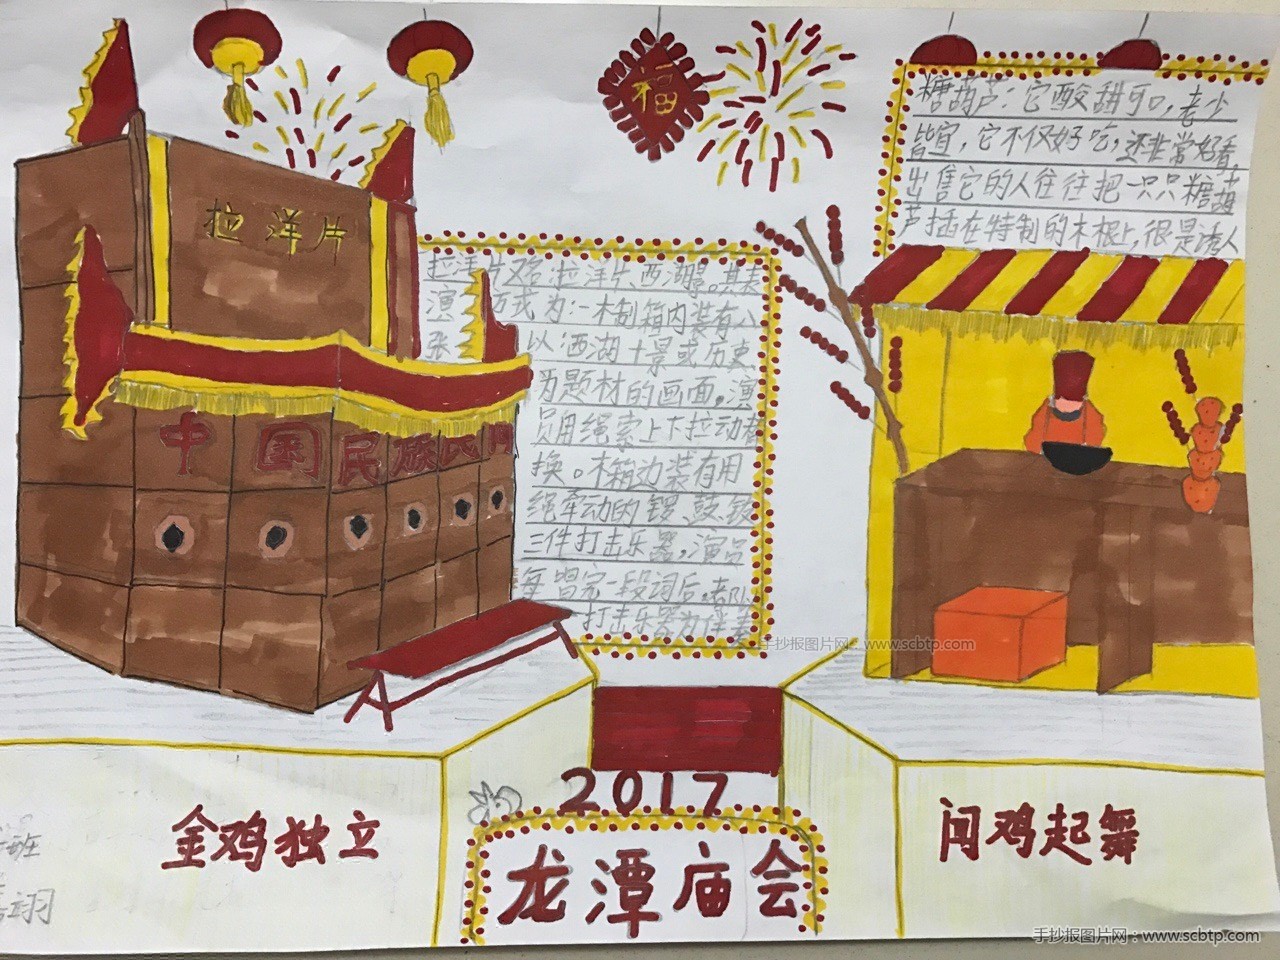 福
糖葫芦:它酸甜可口,老少
皆宜,它不仅好吃,还非常好看,
出售它的人往往把一只只糖葫
芦插在特制的木棍上,很是诱人
拉洋片
拉洋片又名:拉洋片、西湖景。其表
演 方式为:一木制箱内装有八
张 以西湖十景或历史
为题材的画面,演
员用绳索上下拉动替
换。木箱边装有用
绳牵动的锣、鼓、钹
三件打击乐器,演员
每唱完一段词后,
打击乐器为伴奏
中国民族民间
手抄报图片网:www.scbtp.com
2017
龙潭庙会
金鸡独立
闻鸡起舞
班
翊
手抄报图片网:www.scbtp.com